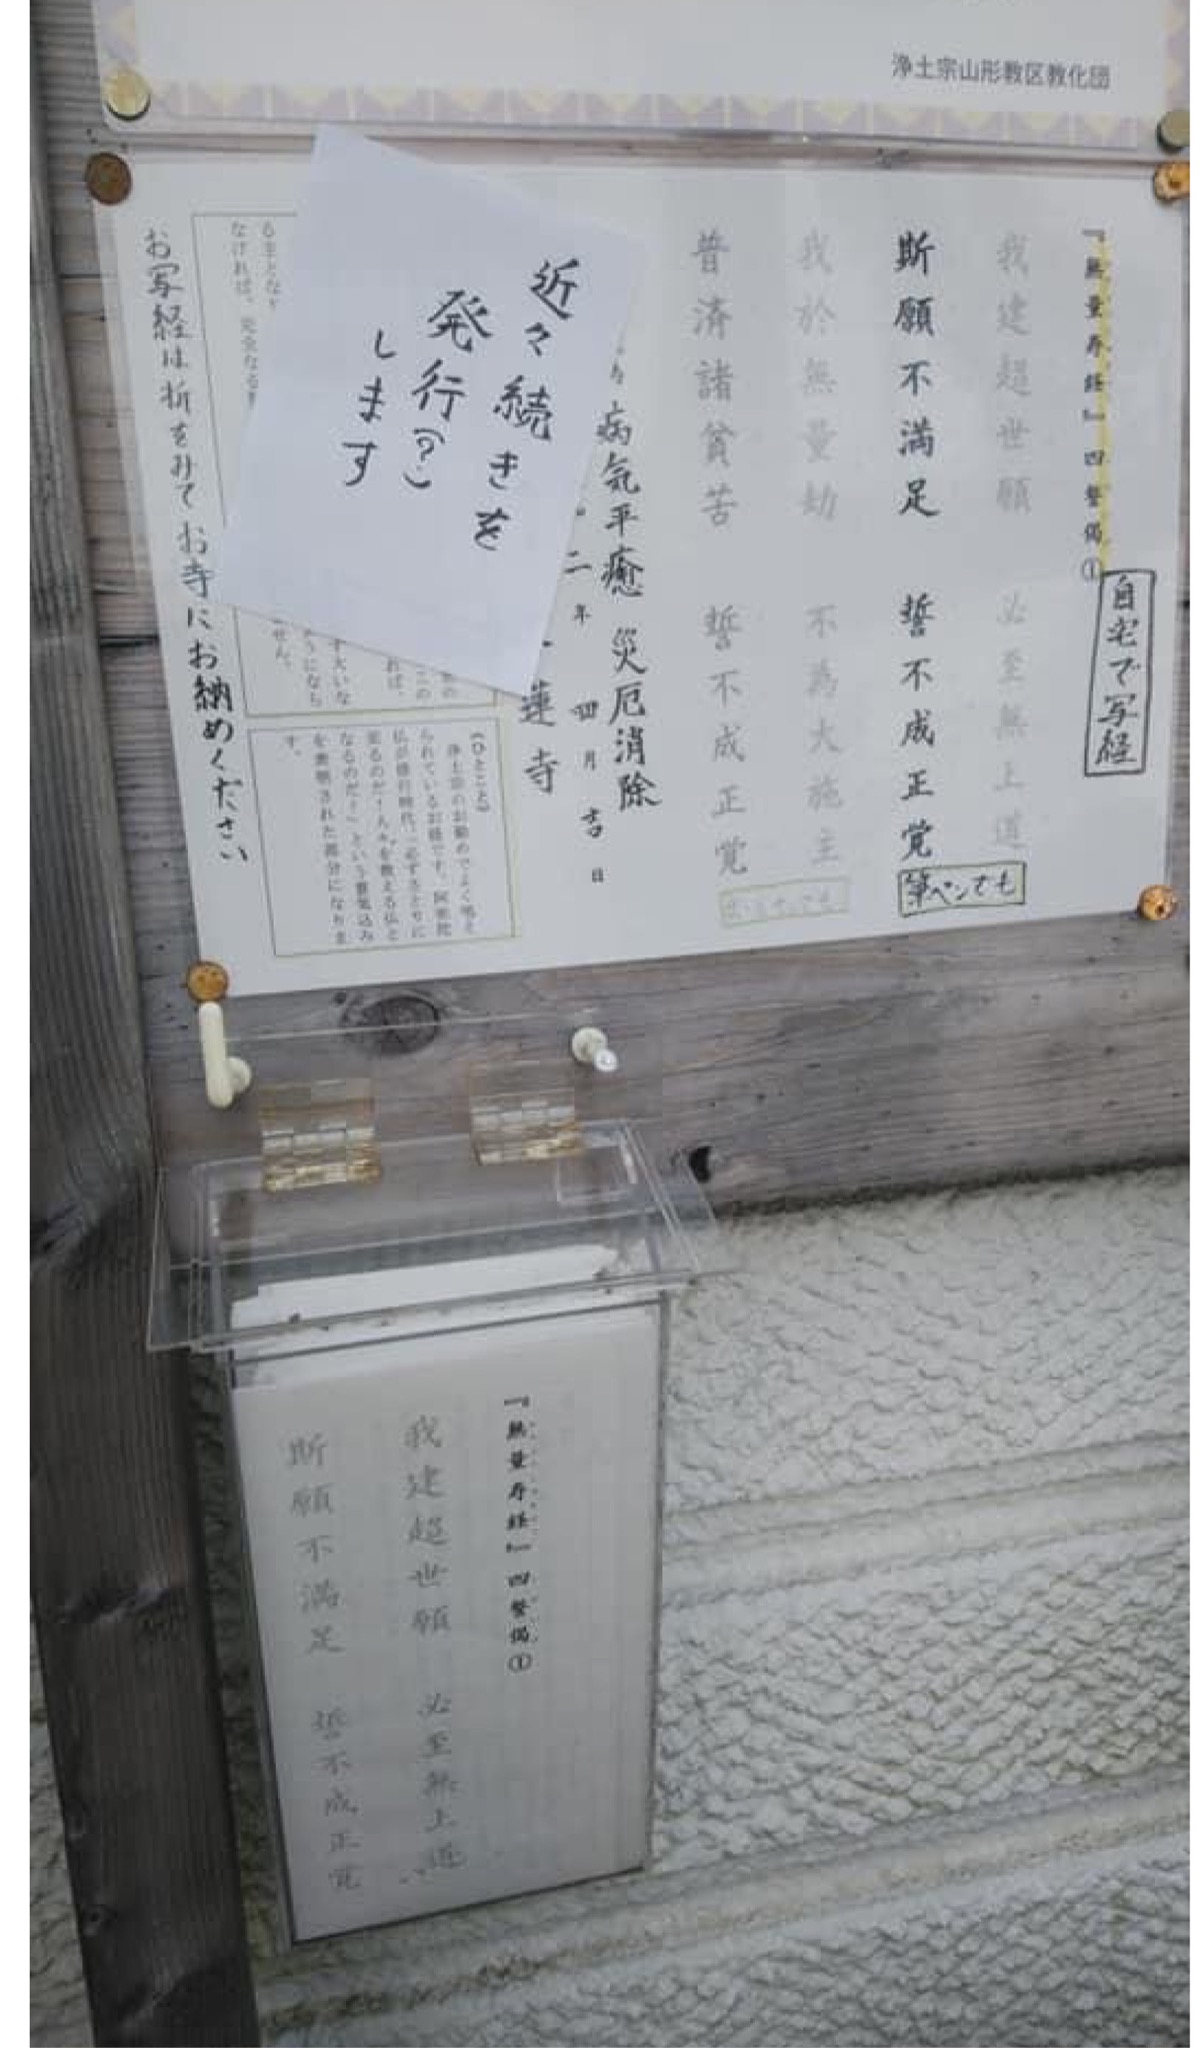 浄土宗山形教区教化団
『無量寿経』四誓偈①
自宅で写経
我建超世願 必至無上道
斯願不満足 誓不成正覚
筆ペンでも
我於無量劫 不為大施主
普済諸貧苦 誓不成正覚
病気平癒 災厄消除
二年 四月 吉日
蓮寺
近々続きを
発行(?)
します
《ひとこと》
浄土宗のお勤めでよく唱え
られているお経です。阿弥陀
仏が修行時代、「必ずさとりに
至るのだ!人々を救える仏と
なるのだ!」という意気込み
を表明された部分になりま
す。
なければ、
せん。
お写経は折をみてお寺にお納めください
『無量寿経』四誓偈①
我建超世願 必至無上道
斯願不満足 誓不成正覚